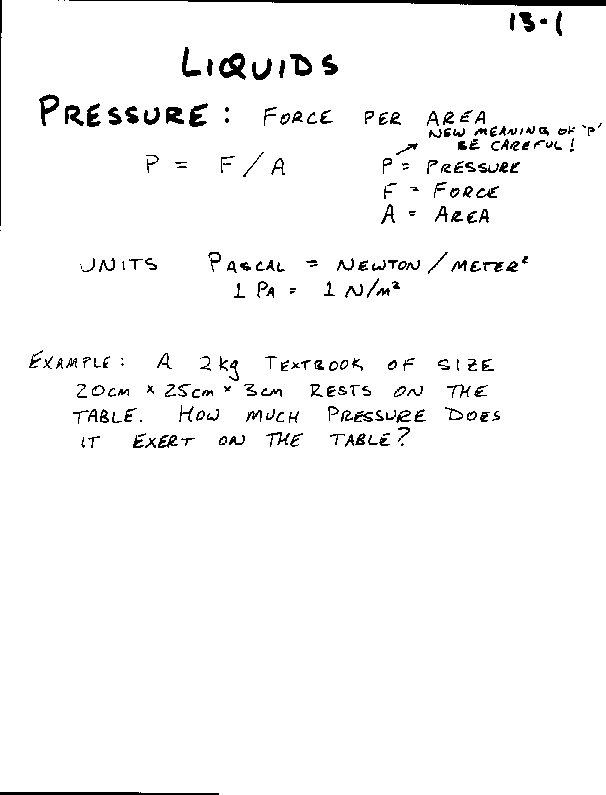 13-1
LIQUIDS
PRESSURE: FORCE PER AREA
NEW MEANING OF "P"
BE CAREFUL!
P = F/A
P = PRESSURE
F = FORCE
A = AREA
UNITS PASCAL = NEWTON/METER²
1 PA = 1 N/M²
EXAMPLE: A 2kg TEXTBOOK OF SIZE
20cm × 25cm × 3cm RESTS ON THE
TABLE. HOW MUCH PRESSURE DOES
IT EXERT ON THE TABLE?